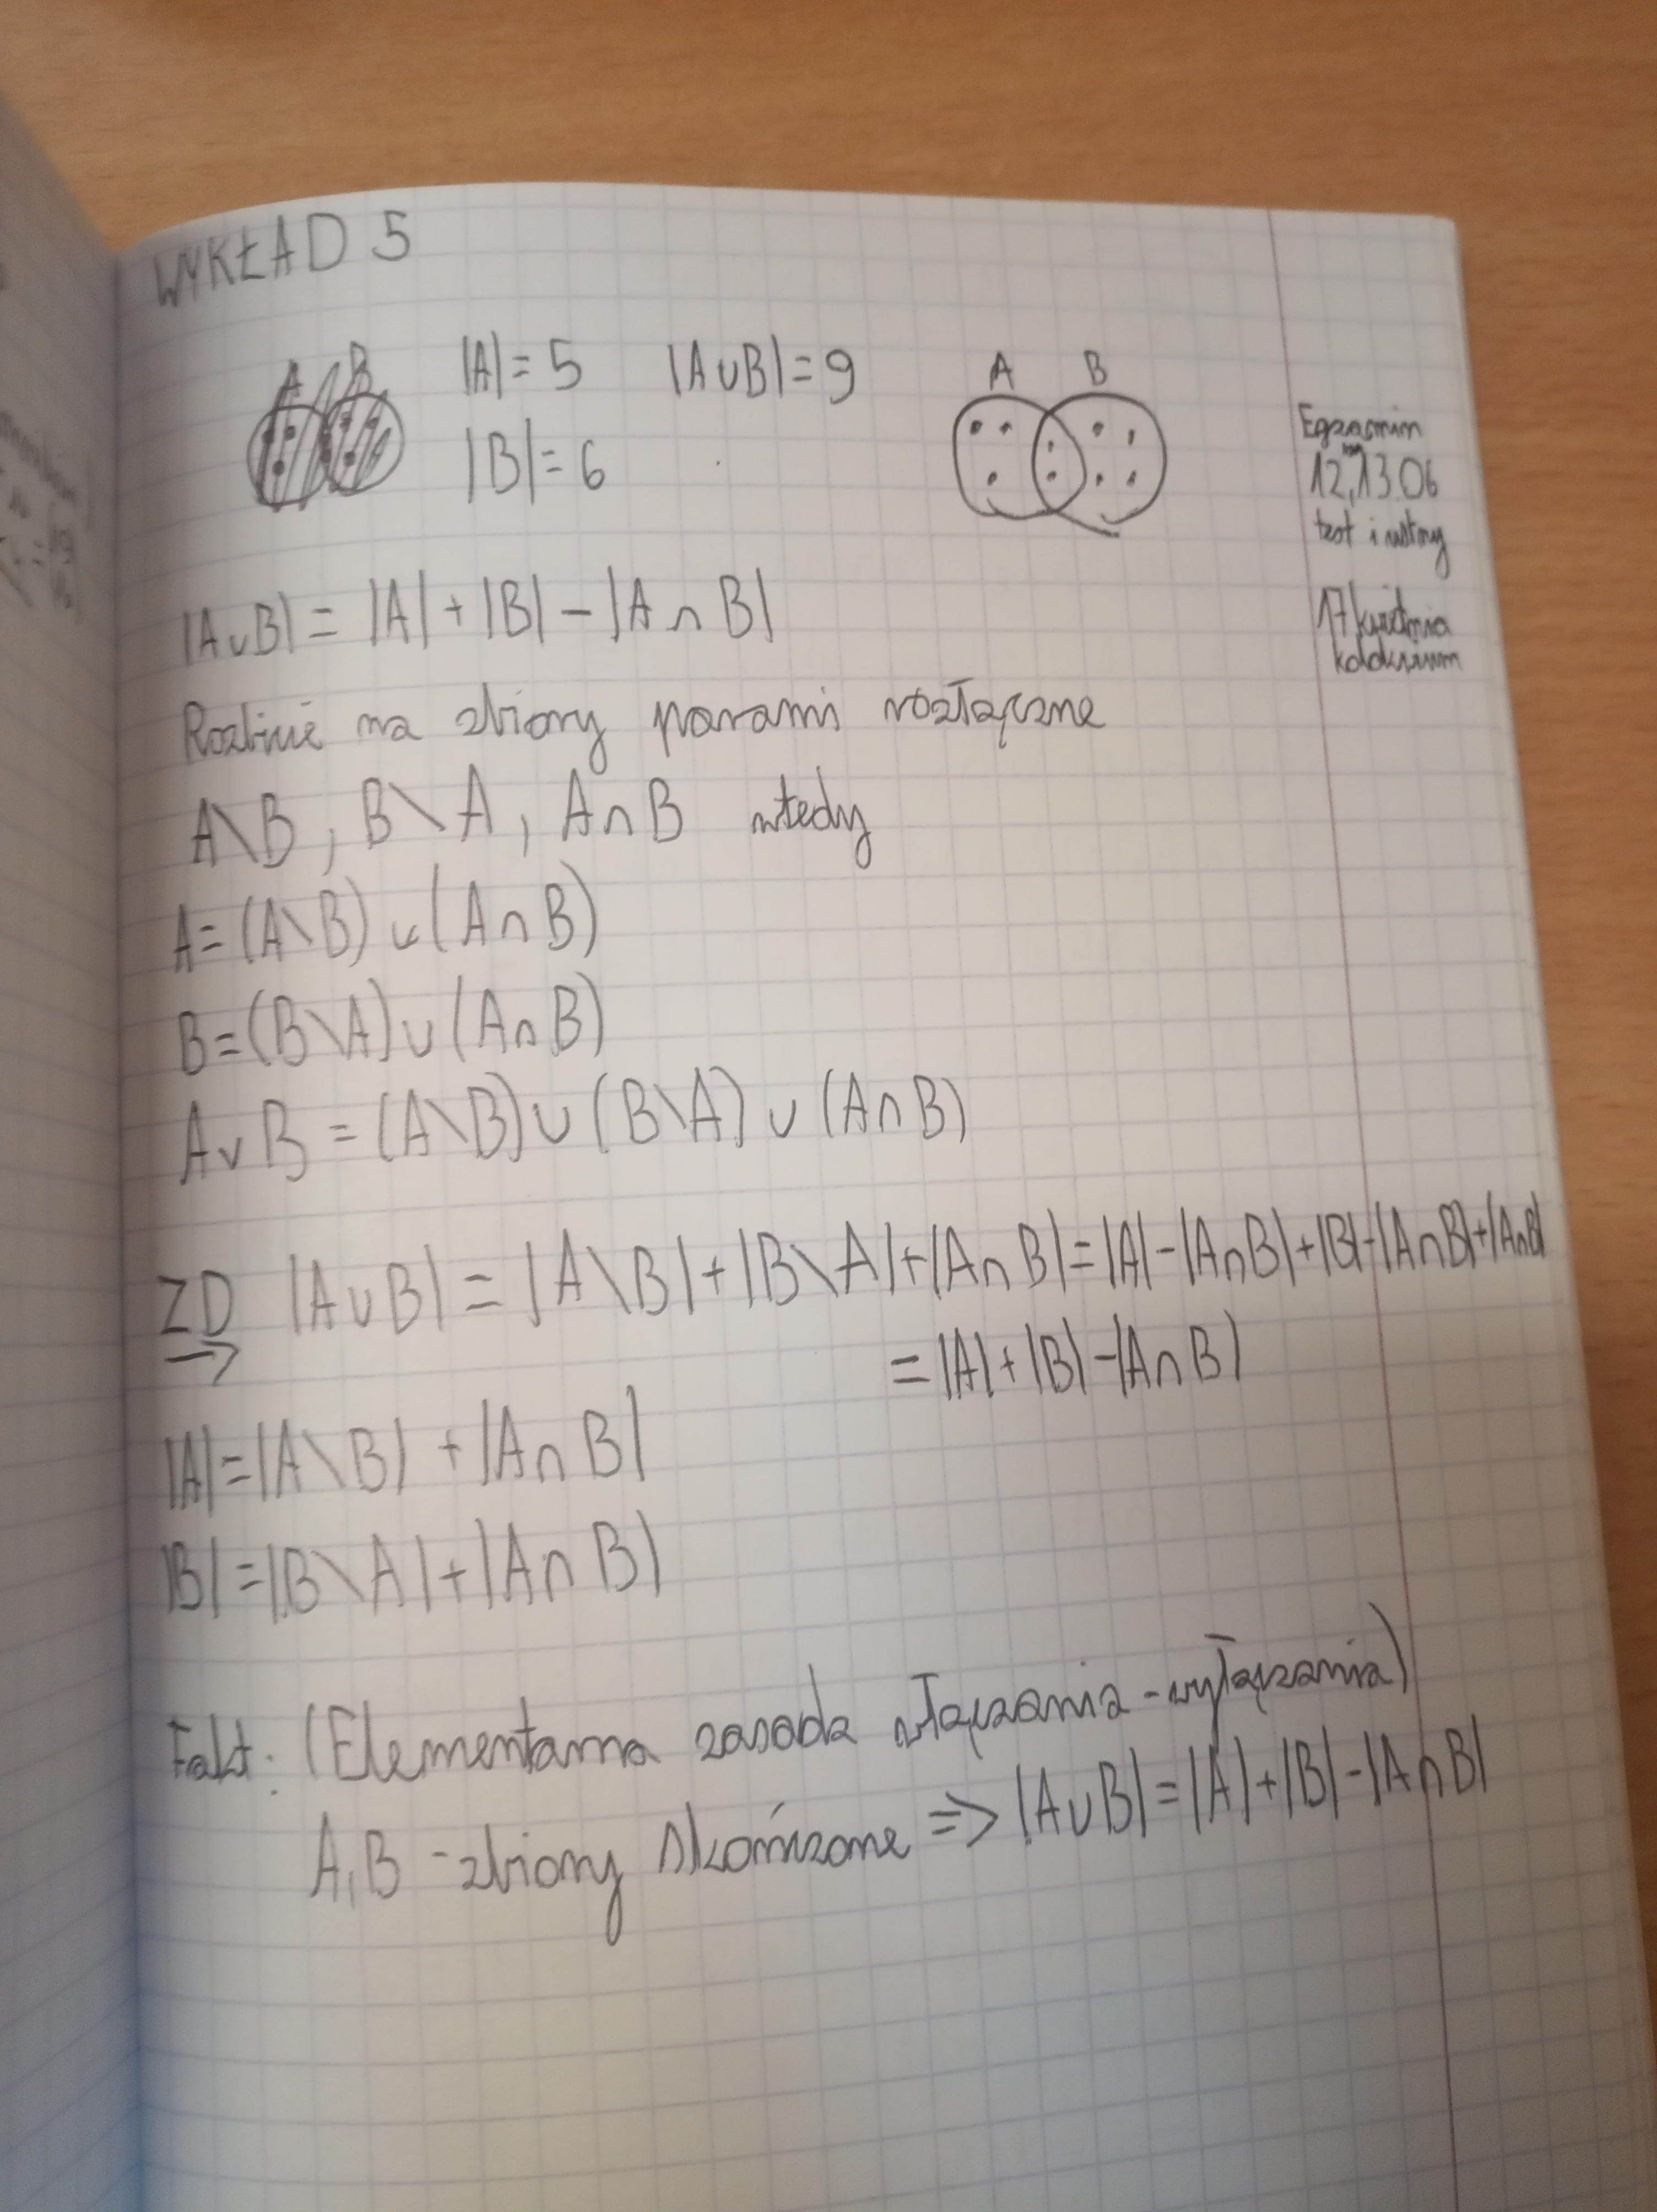 WYKŁAD 5
A B |A| = 5 |A∪B| = 9 A B
|B| = 6
Egzamin
12,13.06
test i ustny
17 kwietnia
kolokwium
|A∪B| = |A| + |B| - |A∩B|
Rozbicie na zbiory parami rozłączne
A\B, B\A, A∩B wtedy
A = (A\B) ∪ (A∩B)
B = (B\A) ∪ (A∩B)
A∪B = (A\B) ∪ (B\A) ∪ (A∩B)
ZD |A∪B| = |A\B| + |B\A| + |A∩B| = |A| - |A∩B| + |B| - |A∩B| + |A∩B|
⇒ = |A| + |B| - |A∩B|
|A| = |A\B| + |A∩B|
|B| = |B\A| + |A∩B|
Fakt: (Elementarna zasada włączania - wyłączania)
A, B - zbiory skończone => |A∪B| = |A| + |B| - |A∩B|